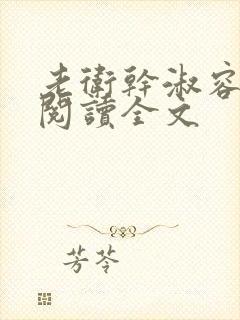 老衛幹淑容
閱讀全文
芳苓